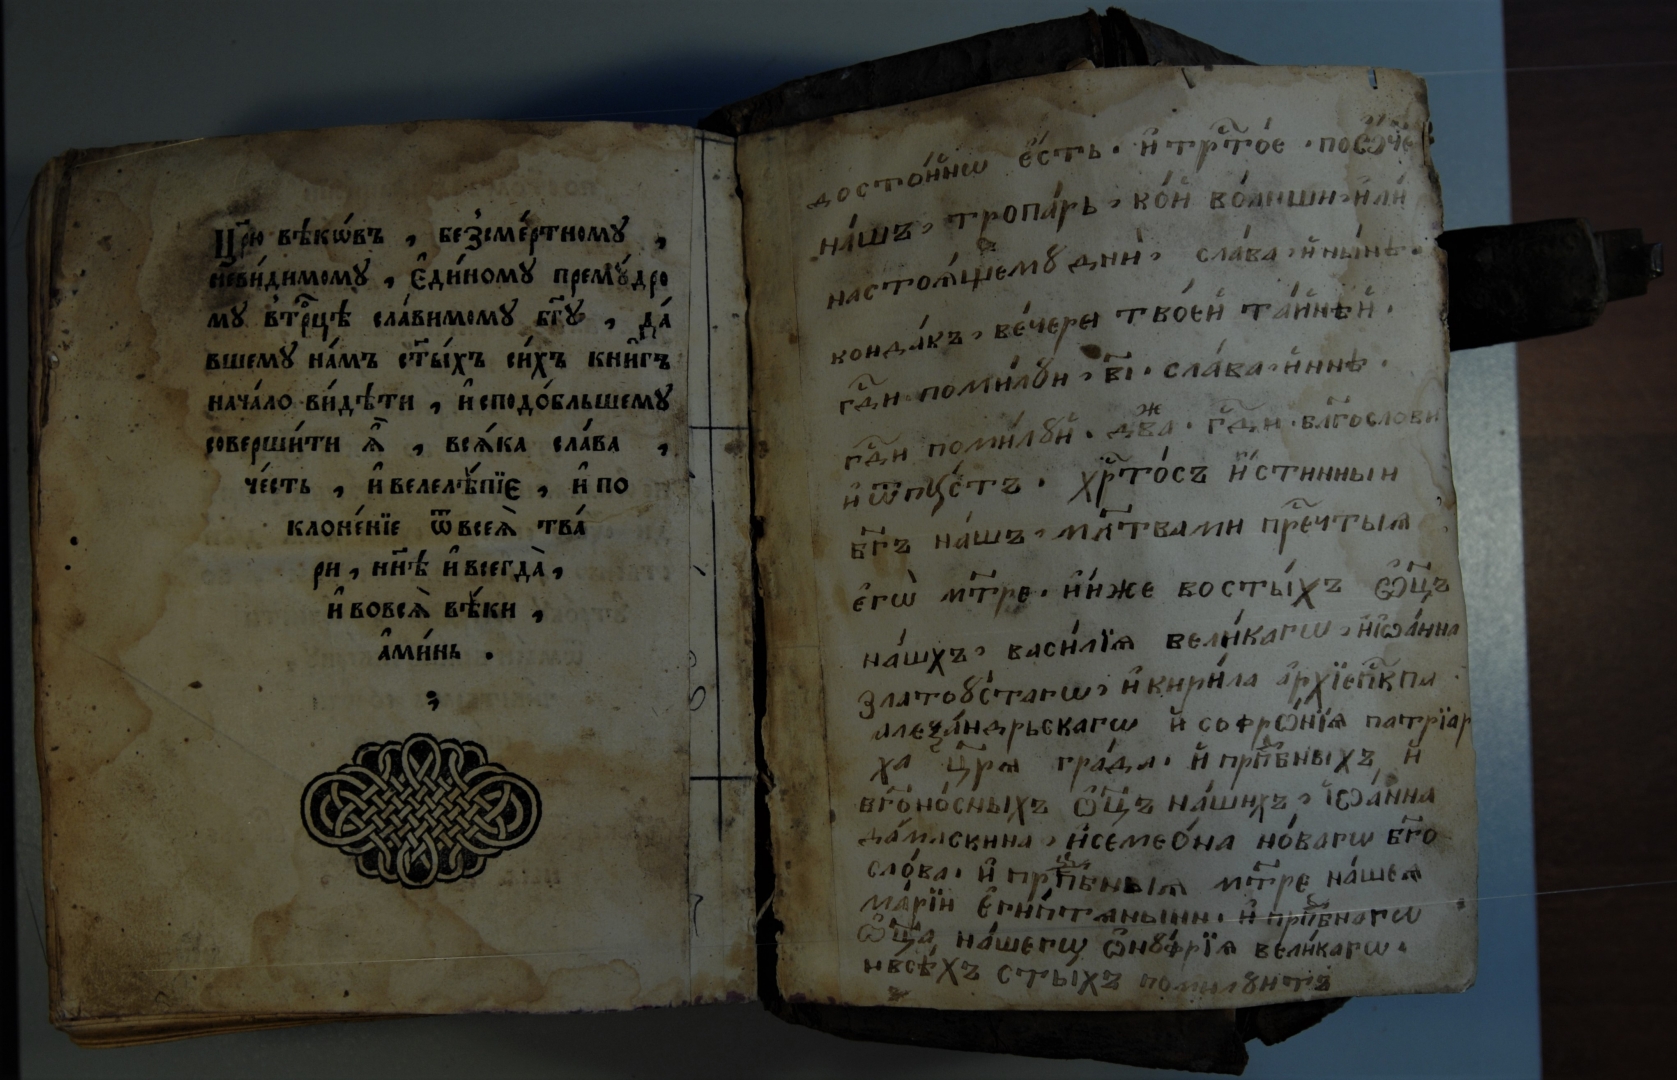 Цр҃ю вѣкѡ́въ , безсме́ртному ,
неви́димому , є҆ди́ному прему́дро
му в̾тр҇оцѣ сла́вимому бг҃ꙋ , да́
вшему на́мъ ст҃ы́хъ си́хъ кни́гъ
нача́ло ви́дѣти , и҆сподо́бльшему
соверши́ти ѧ҆̀ , всѧ́ка сла́ва ,
че́сть , и҆ велелѣ́пїе , и҆ по
клоне́нїе ѿ всеѧ̀ тва́
ри , нн҃ѣ и҆ всегда̀ ,
и҆ вовсѧ̀ вѣ́ки ,
а҆ми́нь .
досто́йнѡ є҆́сть · и҆ трⷭ҇то́е ·
на́шъ , тропа́рь , ко́й и҆лѝ
настоѧ́щемꙋ дни̇̀ , сла́ва , и҆ ны́нѣ ·
конда́къ , ве́чери твое́й та́йнѣй ·
гдⷭ҇и поми́лꙋи , в҃і · сла́ва , и҆ ннѣ ·
гдⷭ҇и поми́лꙋй · два́ж · гдⷭ҇и · блг҃ослови
и҆ ѿпꙋ́стъ · хрⷭ҇то́съ и҆́стинныи
бг҃ъ на́шъ , мл҃твами прⷱ҇етыѧ
є҆гѡ̀ мт҃ре · и҆̀же во ст҃ы́хъ ѻ҆ц҃ъ
на́шхъ , васи́лїѧ вели́кагѡ , и҆ і҆ѡа́нна
златоꙋ́стагѡ , и҆ кири́ла а҆рхїепⷭ҇кпа
алеѯа́ндрьскагѡ и҆ софрѡ́нїѧ патрїар
ха цр҃ѧ гра́да · и҆ прпⷣбныхъ и҆
бг҃оно́сныхъ ѻ҆ц҃ъ на́шихъ , і҆ѡа́нна
да́маскина , и҆ семео́на но́вагѡ бг҃о
сло́ва · и҆ прпⷣбныѧ мт҃ре на́шеѧ
марі́и є҆гѵ́птѧныни · и҆ прпⷣбнагѡ
ѻ҆ц҃а на́шегѡ ѻ҆нꙋ́фрїѧ вели́кагѡ ·
и всѣ́хъ ст҃ы́хъ помилꙋитъ